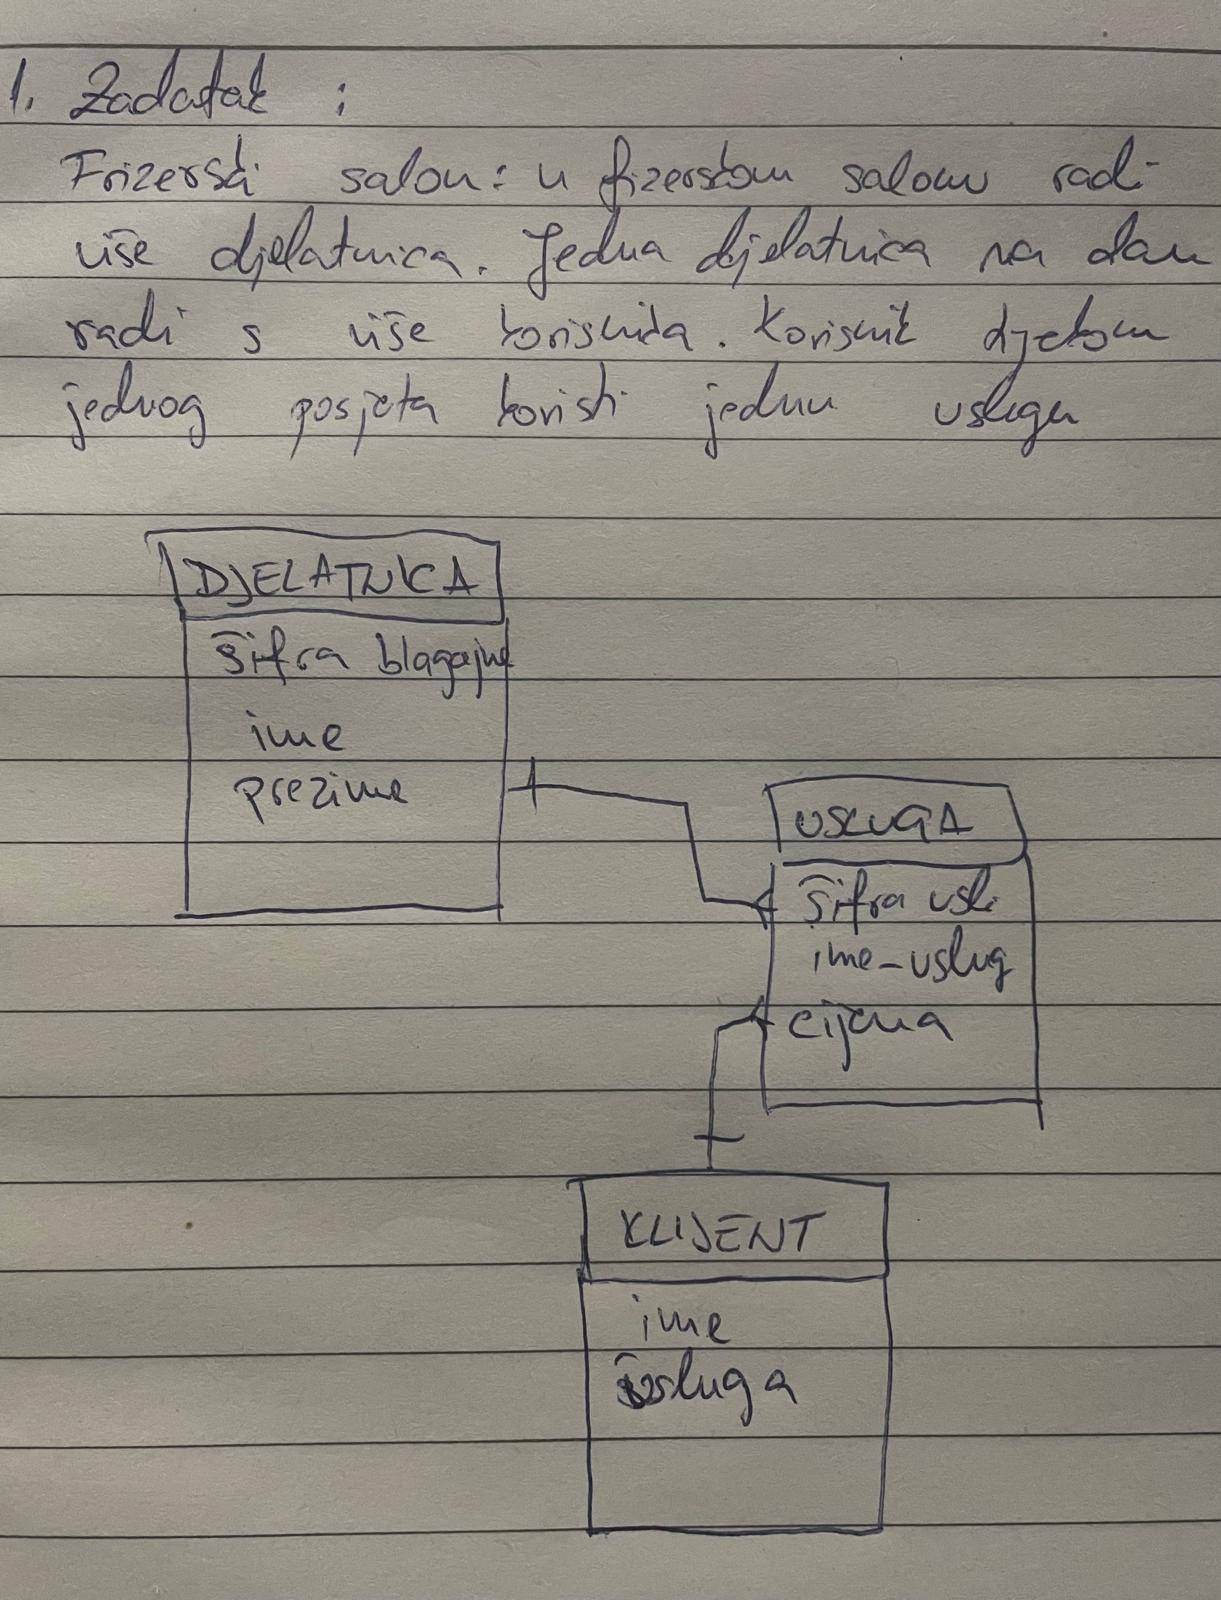 1. Zadatak :
Frizerski salon: u frizerskom salonu radi
više djelatnica. Jedna djelatnica na dan
radi s više korisnika. Korisnik djekom
jednog posjeta koristi jednu uslugu
DJELATNICA
šifra blagajne
ime
prezime
USLUGA
šifra usl.
ime-uslug
cijena
KLIJENT
ime
usluga